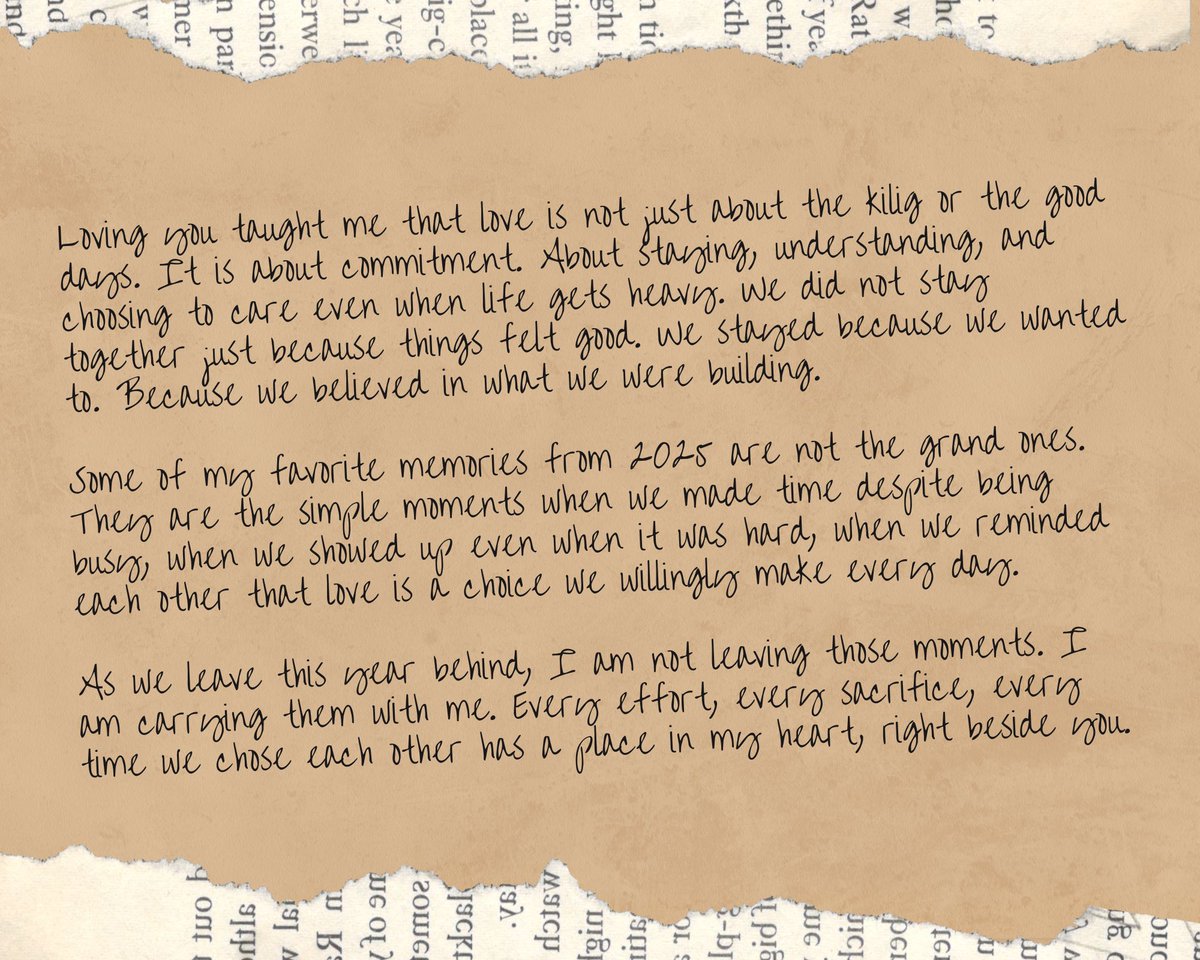 Loving you taught me that love is not just about the kilig or the good
days. It is about commitment. About staying, understanding, and
choosing to care even when life gets heavy. We did not stay
together just because things felt good. We stayed because we wanted
to. Because we believed in what we were building.
Some of my favorite memories from 2025 are not the grand ones.
They are the simple moments when we made time despite being
busy, when we showed up even when it was hard, when we reminded
each other that love is a choice we willingly make every day.
As we leave this year behind, I am not leaving those moments. I
am carrying them with me. Every effort, every sacrifice, every
time we chose each other has a place in my heart, right beside you.